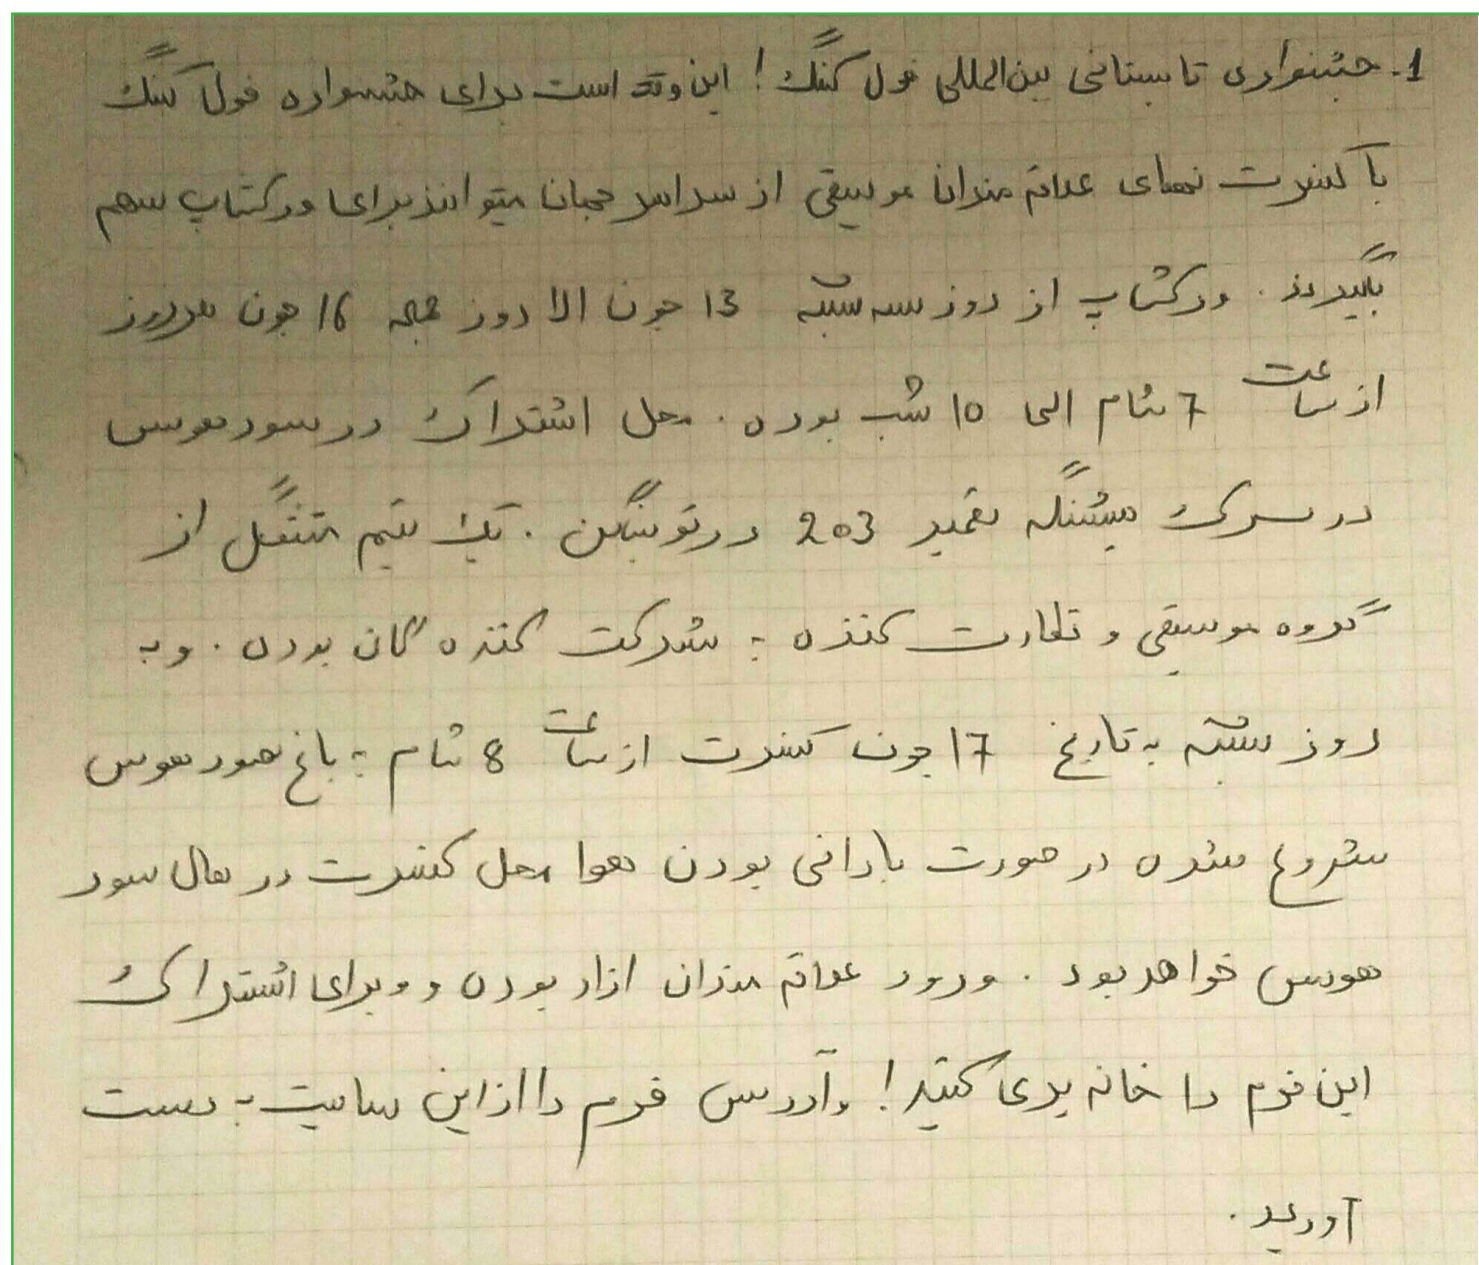 1. جشنواری تابستانی بین‌المللی فول کنگ! این وقت است برای جشنواره فول کنگ
با کنسرت نمای علاقه مندان موسیقی از سراسر جهان میتوانند برای ورکشاپ سهم
بگیرند. ورکشاپ از روز سه شنبه 13 جون الا روز جمعه 16 جون هر روز
از ساعت 7 شام الی 10 شب بوده. محل اشتراک در سود هوس
در سرک هیشنگه نمبر 203 در توبینگن. یک تیم متشکل از
گروه موسیقی و نظارت کننده به شرکت کننده گان بوده. و به
روز شنبه به تاریخ 17 جون کنسرت از ساعت 8 شام به باغ صود هوس
شروع شده در صورت بارانی بودن هوا محل کنسرت در هال سود
هوس خواهد بود. ورود علاقه مندان ازاد بوده و و برای اشتراک
این فرم را خانه پری کنید! وآدرس فرم را از این سایت به دست
آورید.